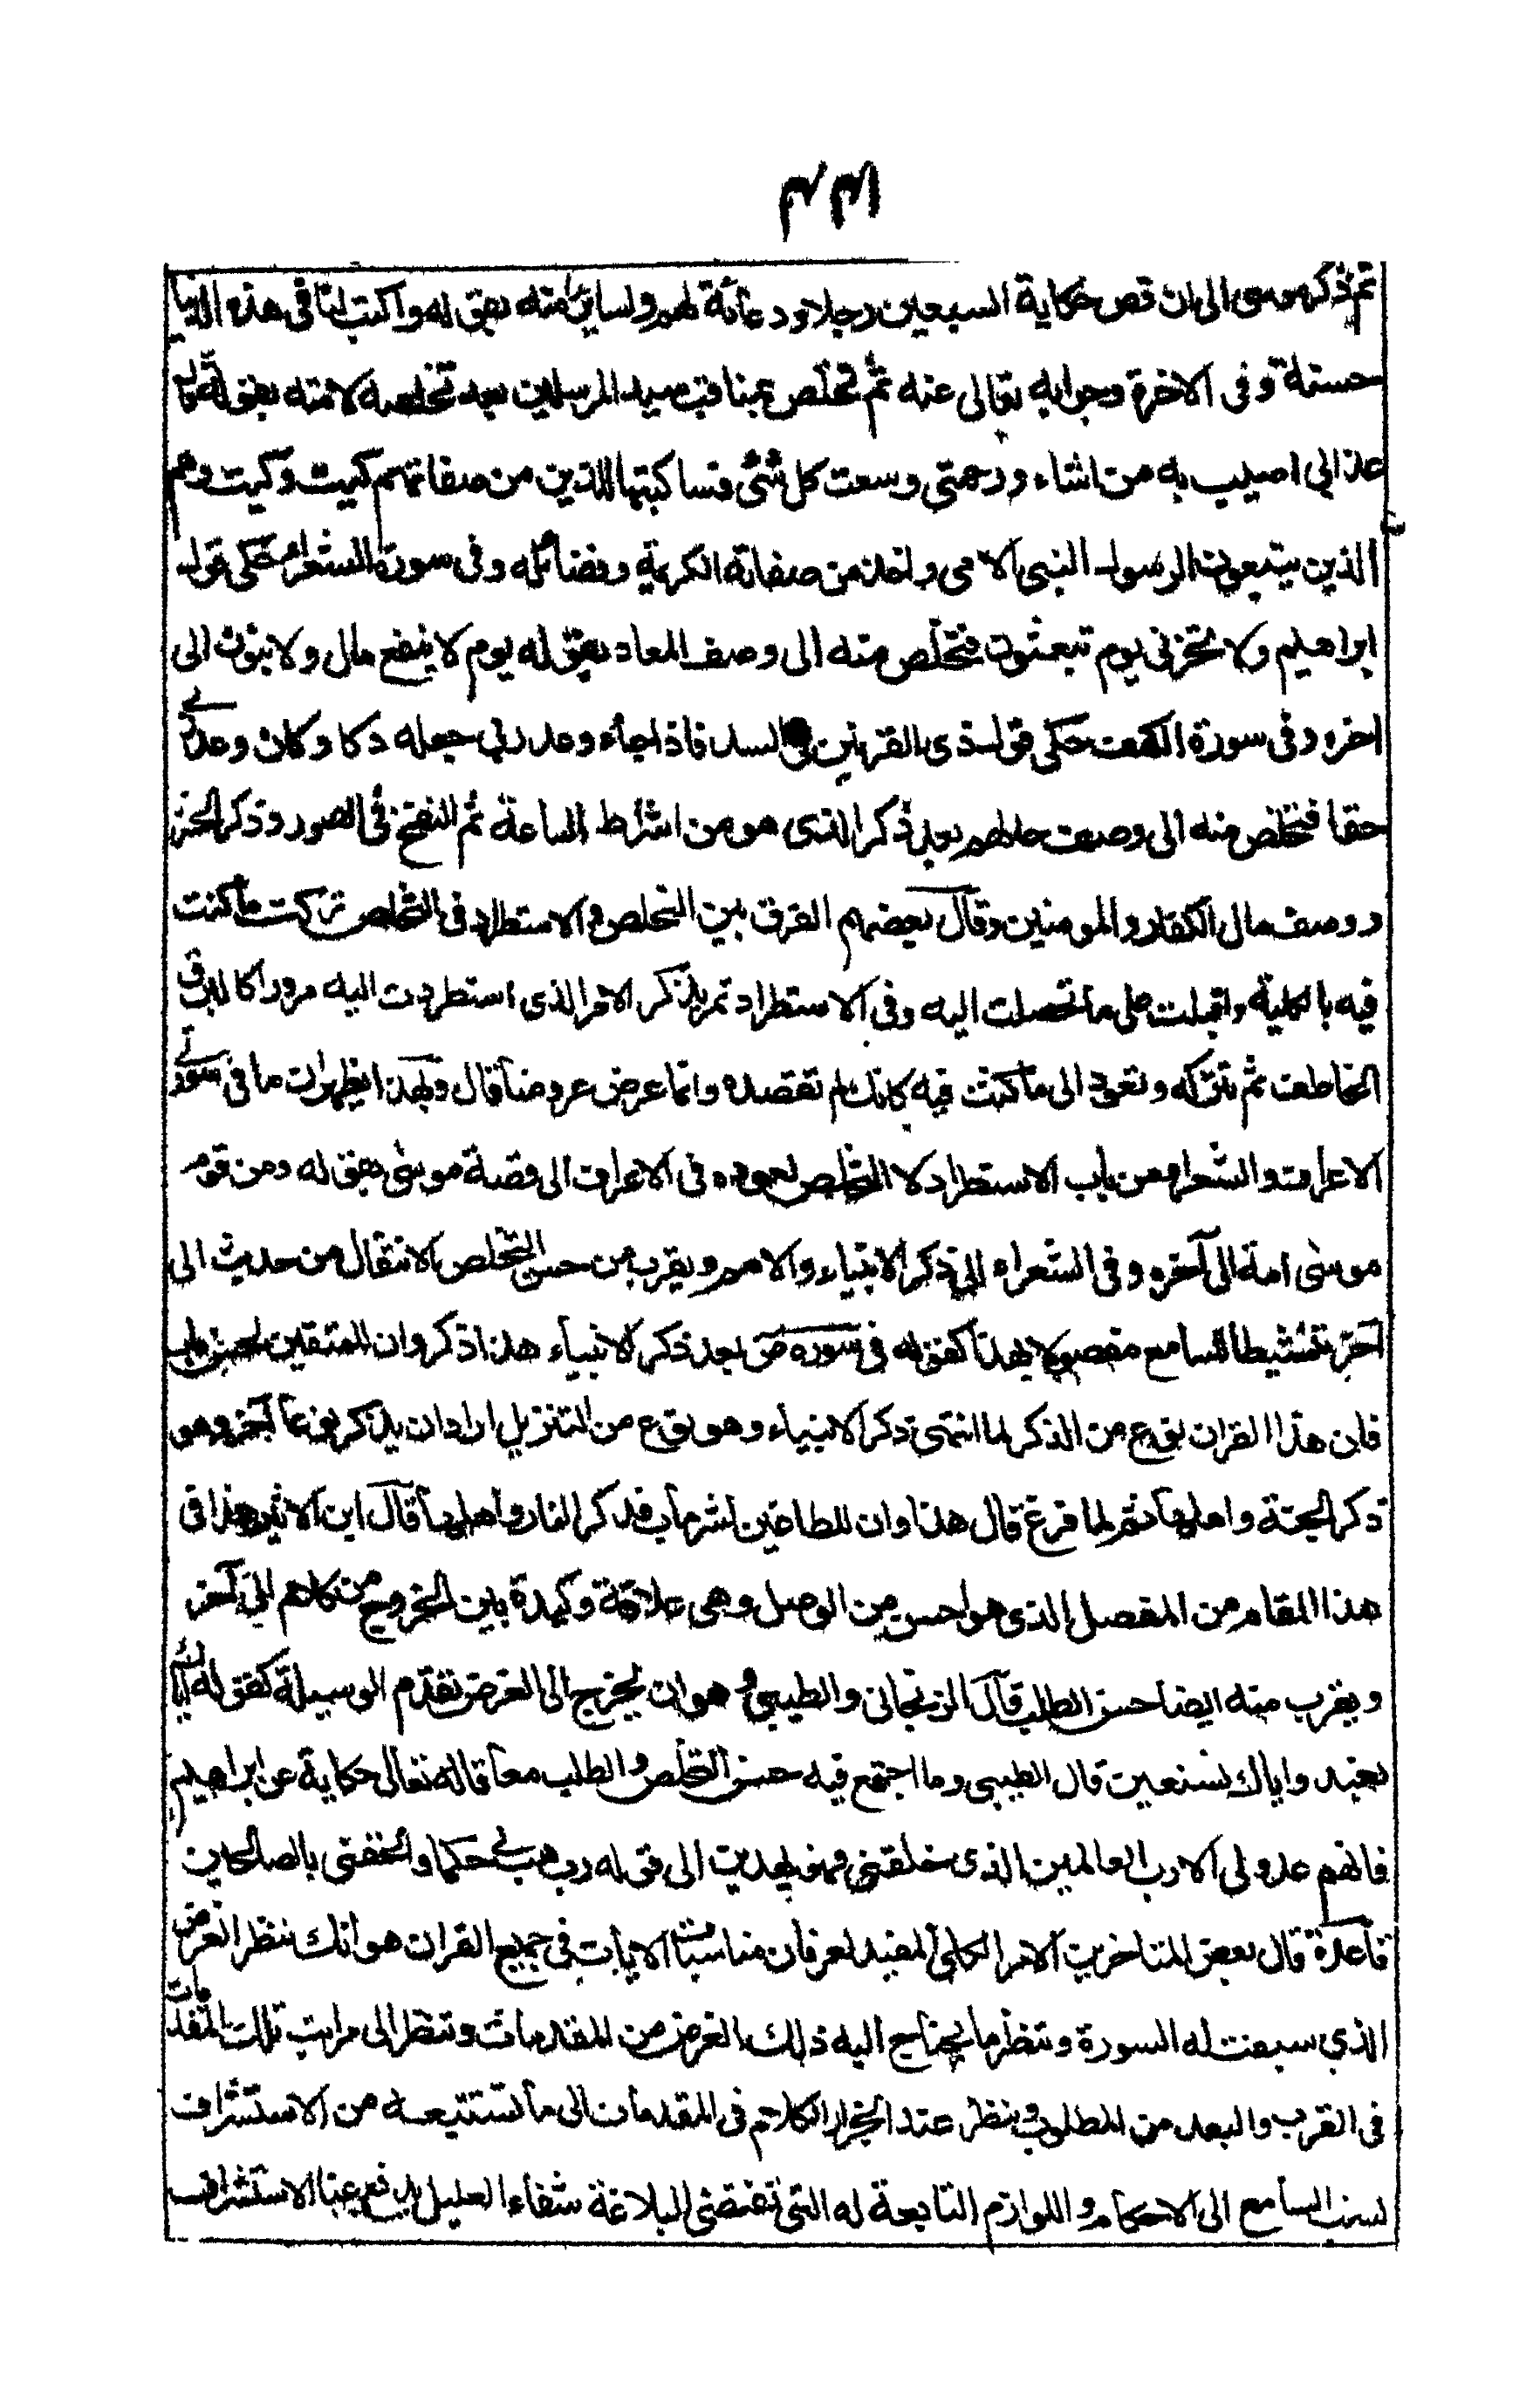 ثم ذكر موسى الى ان قص حكاية السبعين رجلا ودعائه لهم ولسائر امته بقوله واكتب لنا فى هذه الدنيا
حسنة وفى الاخرة وجوابه تعالى عنه ثم تخلص بمناقب سيد المرسلين بعد تخلصه لامته بقوله قال
عذابى اصيب به من اشاء ورحمتى وسعت كل شئ فساكتبها للذين من صفاتهم كيت وكيت وهم
الذين يتبعون الرسول النبى الامى واخذ من صفاته الكريمة وفضائله وفى سورة الشعراء حكى قول
ابراهيم ولا تخزنى يوم يبعثون فتخلص منه الى وصف المعاد بقوله يوم لا ينفع مال ولا بنون الى
اخره وفى سورة الكهف حكى قول ذى القرنين فى السد فاذا جاء وعد ربى جعله دكا وكان وعد ربى
حقا فتخلص منه الى وصف حالهم بعد ذكر الذى هو من اشراط الساعة ثم النفخ فى الصور وذكر الحشر
ووصف مال الكفار والمومنين وقال بعضهم الفرق بين التخلص والاستطراد فى التخلص تركت ما كنت
فيه بالكلية واقبلت على ما تخلصت اليه وفى الاستطراد تمر بذكر الامر الذى استطردت اليه مرورا كالبرق
الخاطف ثم تتركه وتعود الى ما كنت فيه كانك لم تقصده وانما عرض عروضا قال وبهذا يظهر ان ما فى سورتى
الاعراف والشعراء من باب الاستطراد لا التخلص لعوده فى الاعراف الى قصة موسى بقوله ومن قوم
موسى امة الى آخره وفى الشعراء الى ذكر الانبياء والامم ويقرب من حسن التخلص الانتقال من حديث الى
آخر تنشيطا للسامع مفصولا بهذا كقوله فى سورة ص بعد ذكر الانبياء هذا ذكر وان للمتقين لحسن ماب
فان هذا القران نوع من الذكر لما انتهى ذكر الانبياء وهو نوع من التنزيل اراد ان يذكر نوعا آخر وهو
ذكر الجنة واهلها ثم لما فرغ قال هذا وان للطاغين لشر ماب فذكر النار واهلها قال ابن الاثير هذا فى
هذا المقام من الفصل الذى هو احسن من الوصل وهى علاقة وكيدة بين الخروج من كلام الى آخر
ويقرب منه ايضا حسن الطلب قال الزنجانى والطيبى وهو ان يخرج الى الغرض بعد تقدم الوسيلة كقوله اياك
نعبد واياك نستعين قال الطيبى وما اجتمع فيه حسن التخلص والطلب معا قاله تعالى حكاية عن ابراهيم
فانهم عدو لى الا رب العالمين الذى خلقنى فهو يهدين الى قوله رب هب لى حكما والحقنى بالصالحين
قاعدة قال بعض المتاخرين الامر الكلى المفيد لعرفان مناسبات الايات فى جميع القران هو انك تنظر الغرض
الذى سيقت له السورة وتنظر ما يحتاج اليه ذلك الغرض من المقدمات وتنظر الى مراتب تلك المقدمات
فى القرب والبعد من المطلوب وتنظر عند انجرار الكلام فى المقدمات الى ما تستتبعه من الاستشراف
نفس السامع الى الاحكام واللوازم التابعة له التى تقتضى البلاغة شفاء العليل بدفع عنا الاستشراف